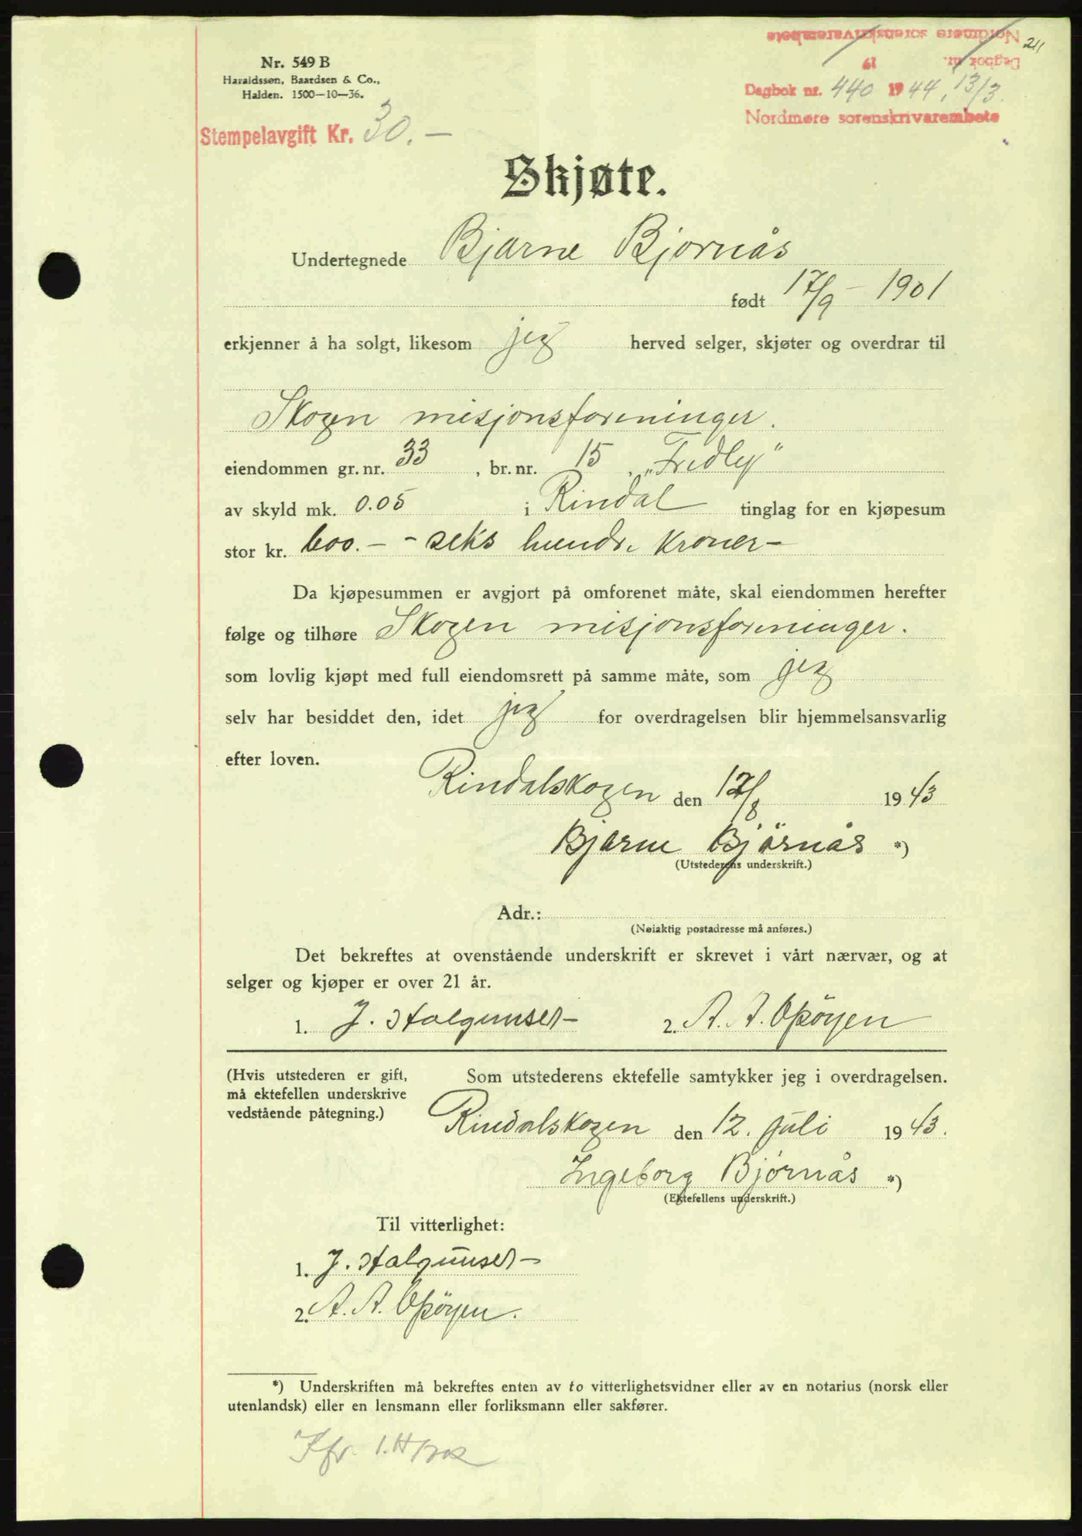 Nordmøre sorenskrivarembete
Dagbok nr. 19
211
Nr. 549 B
Haraldssøn, Baardsen & Co.,
Halden. 1500—10—36.
Dagbok nr. 440 1944, 13/3.
Nordmøre sorenskrivarembete
Stempelavgift Kr. 30.—
Skjøte.
Undertegnede Bjarne Bjørnås
født 17/9 - 1901
erkjenner å ha solgt, likesom jeg herved selger, skjøter og overdrar til
Skogen misjonsforeninger.
eiendommen gr. nr. 33, br. nr. 15, „Fredly"
av skyld mk. 0.05 i Rindal tinglag for en kjøpesum
stor kr. 600.— - seks hundre kroner—
Da kjøpesummen er avgjort på omforenet måte, skal eiendommen herefter
følge og tilhøre Skogen misjonsforeninger.
som lovlig kjøpt med full eiendomsrett på samme måte, som jeg
selv har besiddet den, idet jeg for overdragelsen blir hjemmelsansvarlig
efter loven.
Rindalskogen den 12/8 1943
Bjarne Bjørnås *)
(Utstederens underskrift.)
Adr.:
(Nøiaktig postadresse må anføres.)
Det bekreftes at ovenstående underskrift er skrevet i vårt nærvær, og at
selger og kjøper er over 21 år.
1. J. Halgunset— 2. A. A. Opøyen
(Hvis utstederen er gift,
må ektefellen underskrive
vedstående påtegning.)
Som utstederens ektefelle samtykker jeg i overdragelsen.
Rindalskogen den 12. juli 1943.
Ingeborg Bjørnås *)
(Ektefellens underskrift.)
Til vitterlighet:
1. J. Halgunset—
2. A. A. Opøyen.
*) Underskriften må bekreftes enten av to vitterlighetsvidner eller av en notarius (norsk eller
utenlandsk) eller en lensmann eller forliksmann eller sakfører.